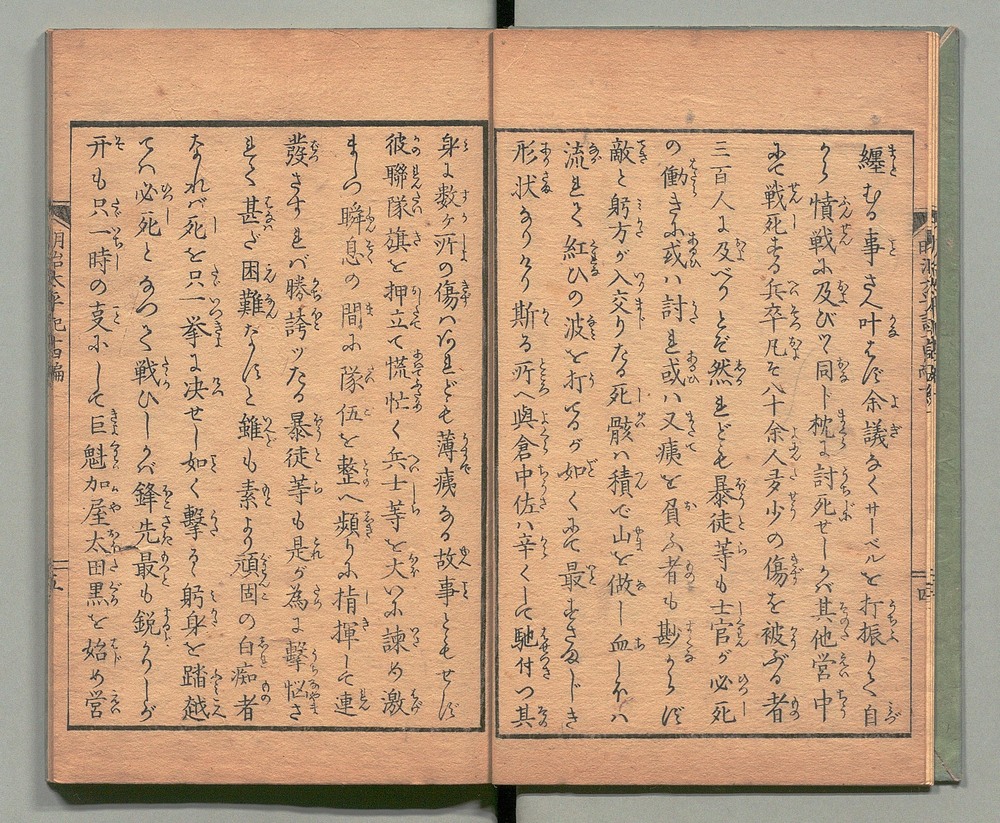 纏むる事さへ叶はず余議なくサーベルを打振りて自
から憤戦に及びツ同し枕に討死せしかバ其他営中
にて戦死する兵卒凡そ八十余人多少の傷を被ぶる者
三百人に及べりとぞ然れども暴徒等も士官が必死
の働きに或ハ討れ或ハ又痍を負ふ者も尠からず
敵と躬方が入交りたる死骸ハ積で山を做し血しほハ
流れて紅ひの波を打するが如くにて最すさまじき
形状なりけり斯る所へ與倉中佐ハ辛くして馳付つ其
身に数ヶ所の傷ハあれども薄痍なる故事ともせず
彼聯隊旗を押立て慌忙く兵士等を大いに諌め激
まし瞬息の間に隊伍を整へ頻りに指揮して連
發さすれバ勝誇ッたる暴徒等も是が為に撃悩さ
れて甚だ困難なりと雖も素より頑固の白痴者
なれバ死を只一挙に决せし如く撃るゝ躬身を踏越
てハ必死となつて戦ひしかバ鋒先最も鋭かりしが
开も只一時の支にして巨魁加屋太田黒を始め営
明治太平記十四編
四
五